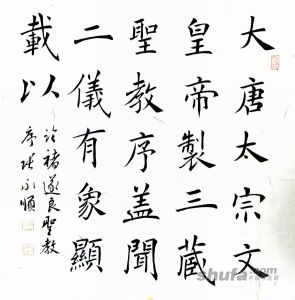 大唐太宗文
皇帝製三藏
聖教序盖聞
二儀有象顯
載以
临褚遂良聖教
序张永順
shufa.com